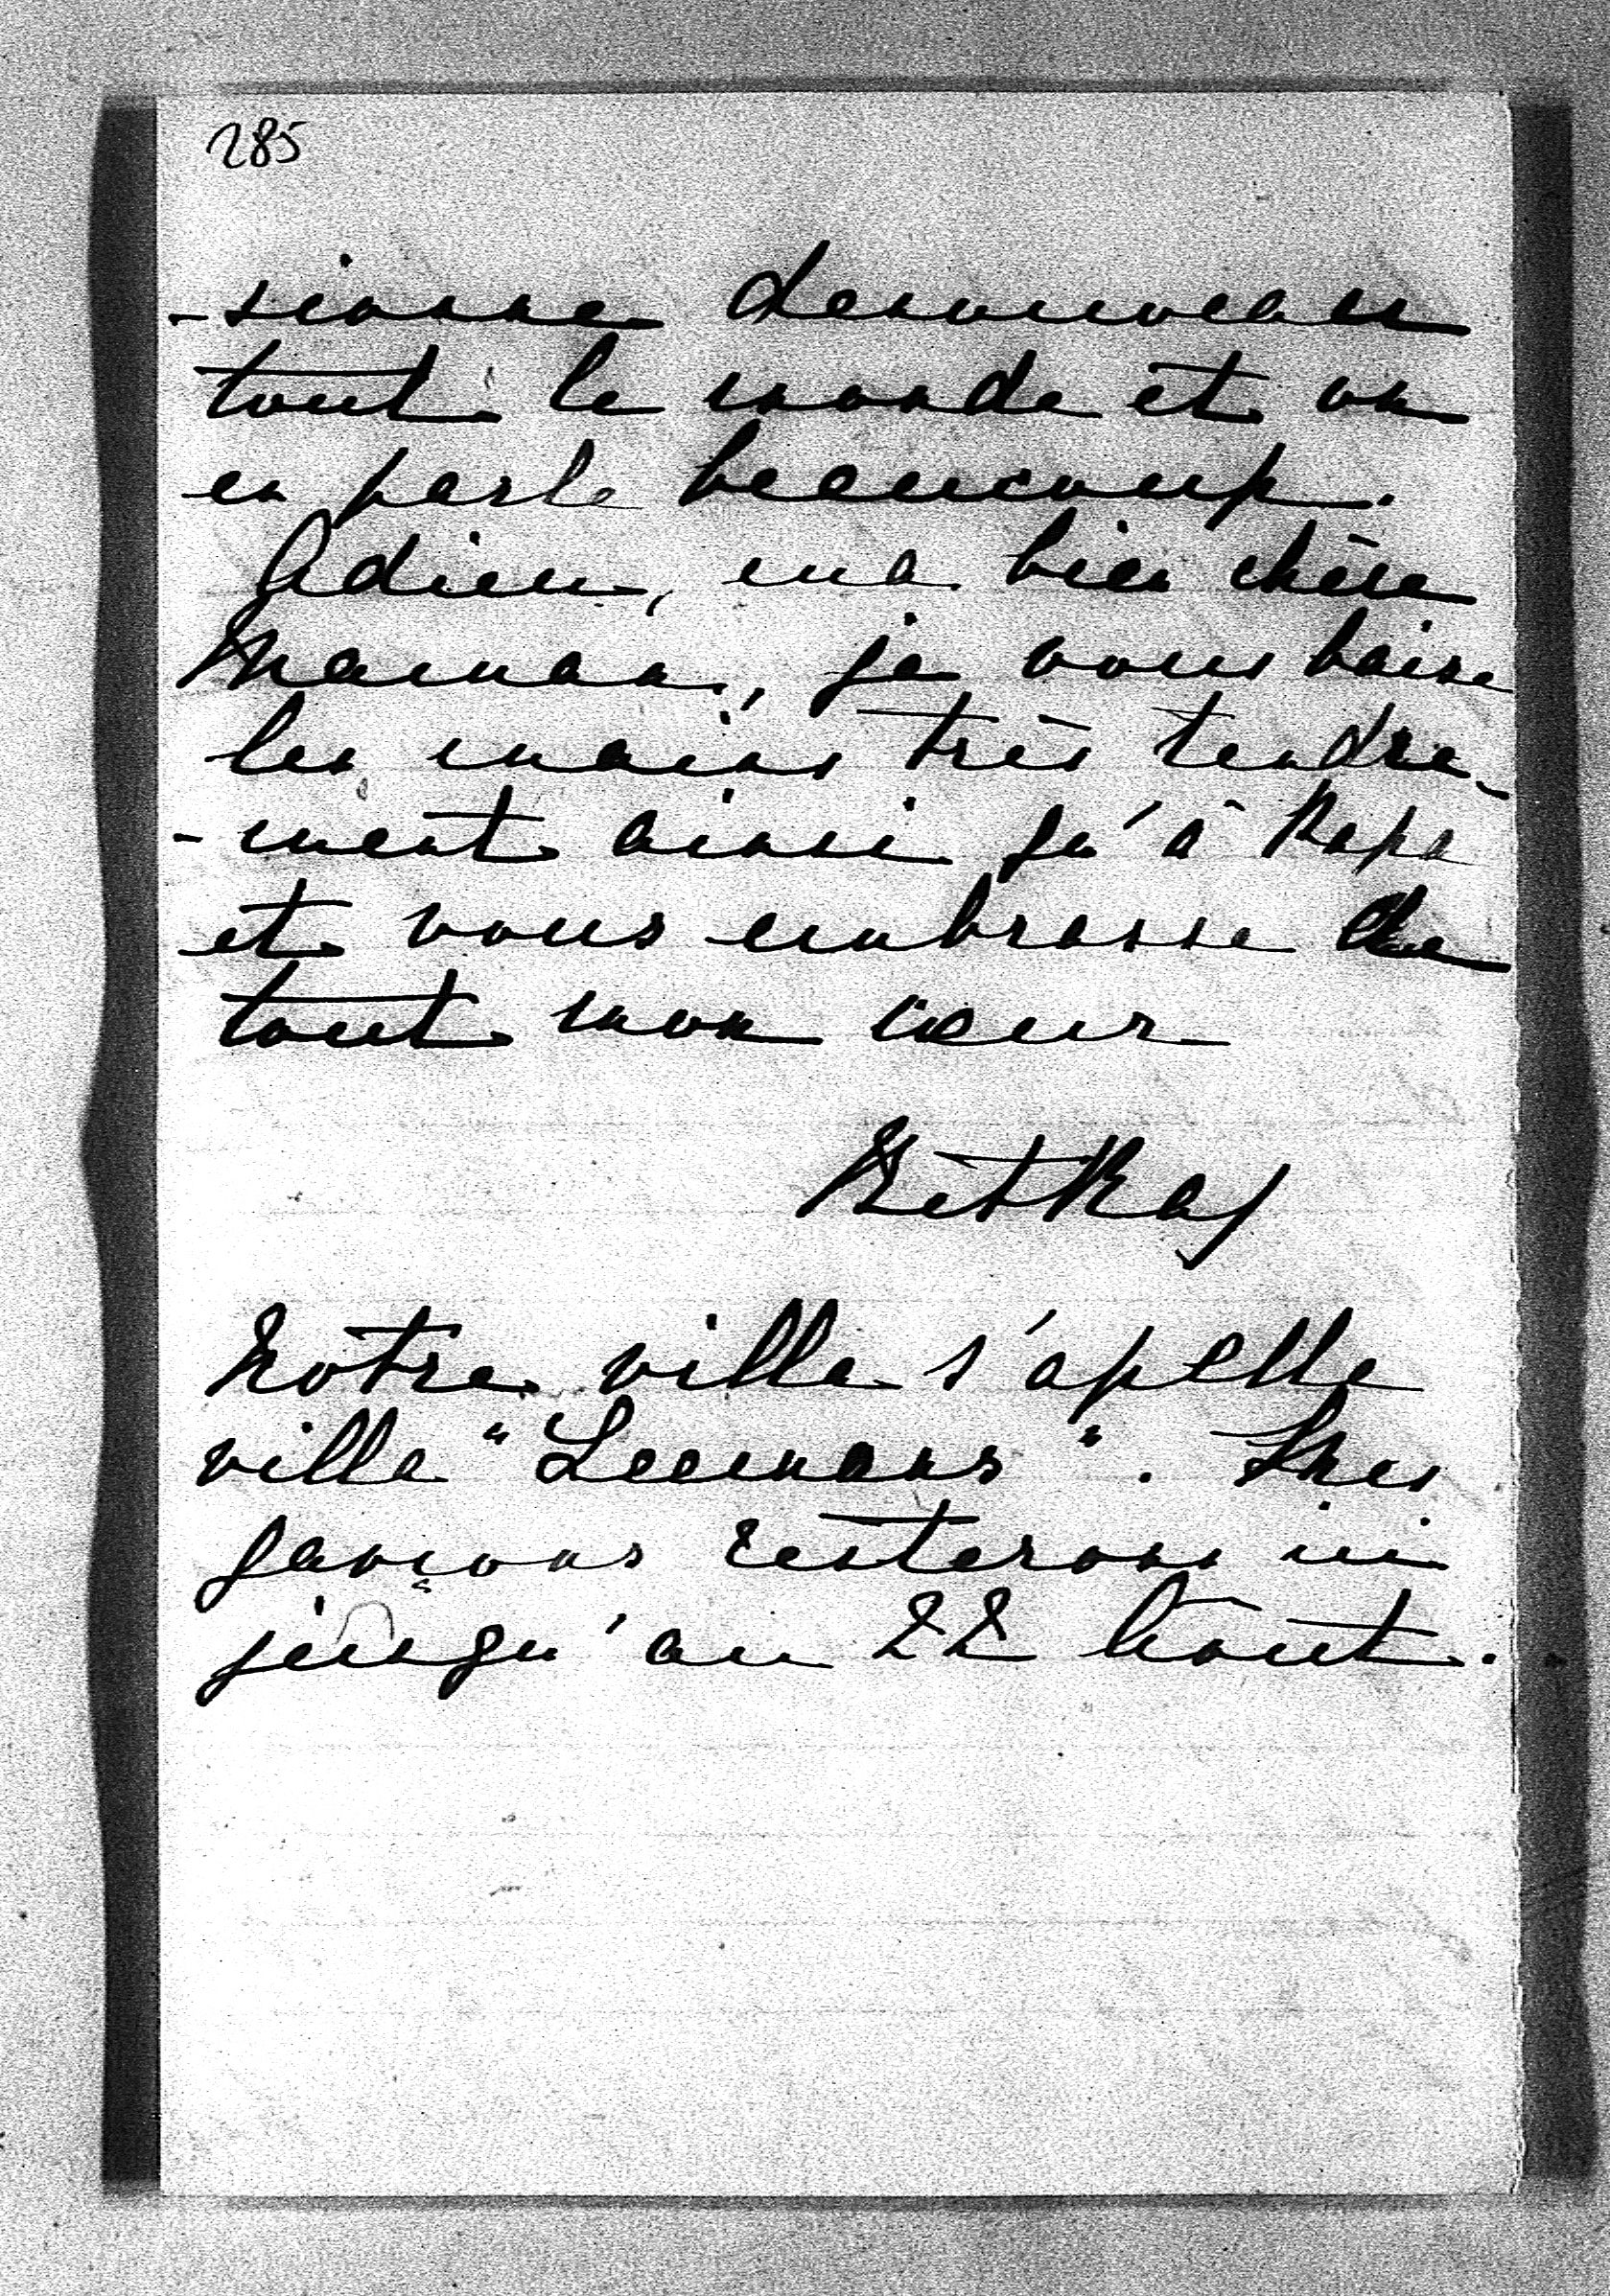 285
-sionne
tout le monde et on
en parle beaucoup.
Adieu, ma bien chère
Maman, je vous baise
les mains très tendre-
-ment ainsi qu'à Papa
et vous embrasse de
tout mon cœur
Notre villa s'apelle
villa "Leemans". Mes
garçons resterons ici
jusqu'au 22 Août.